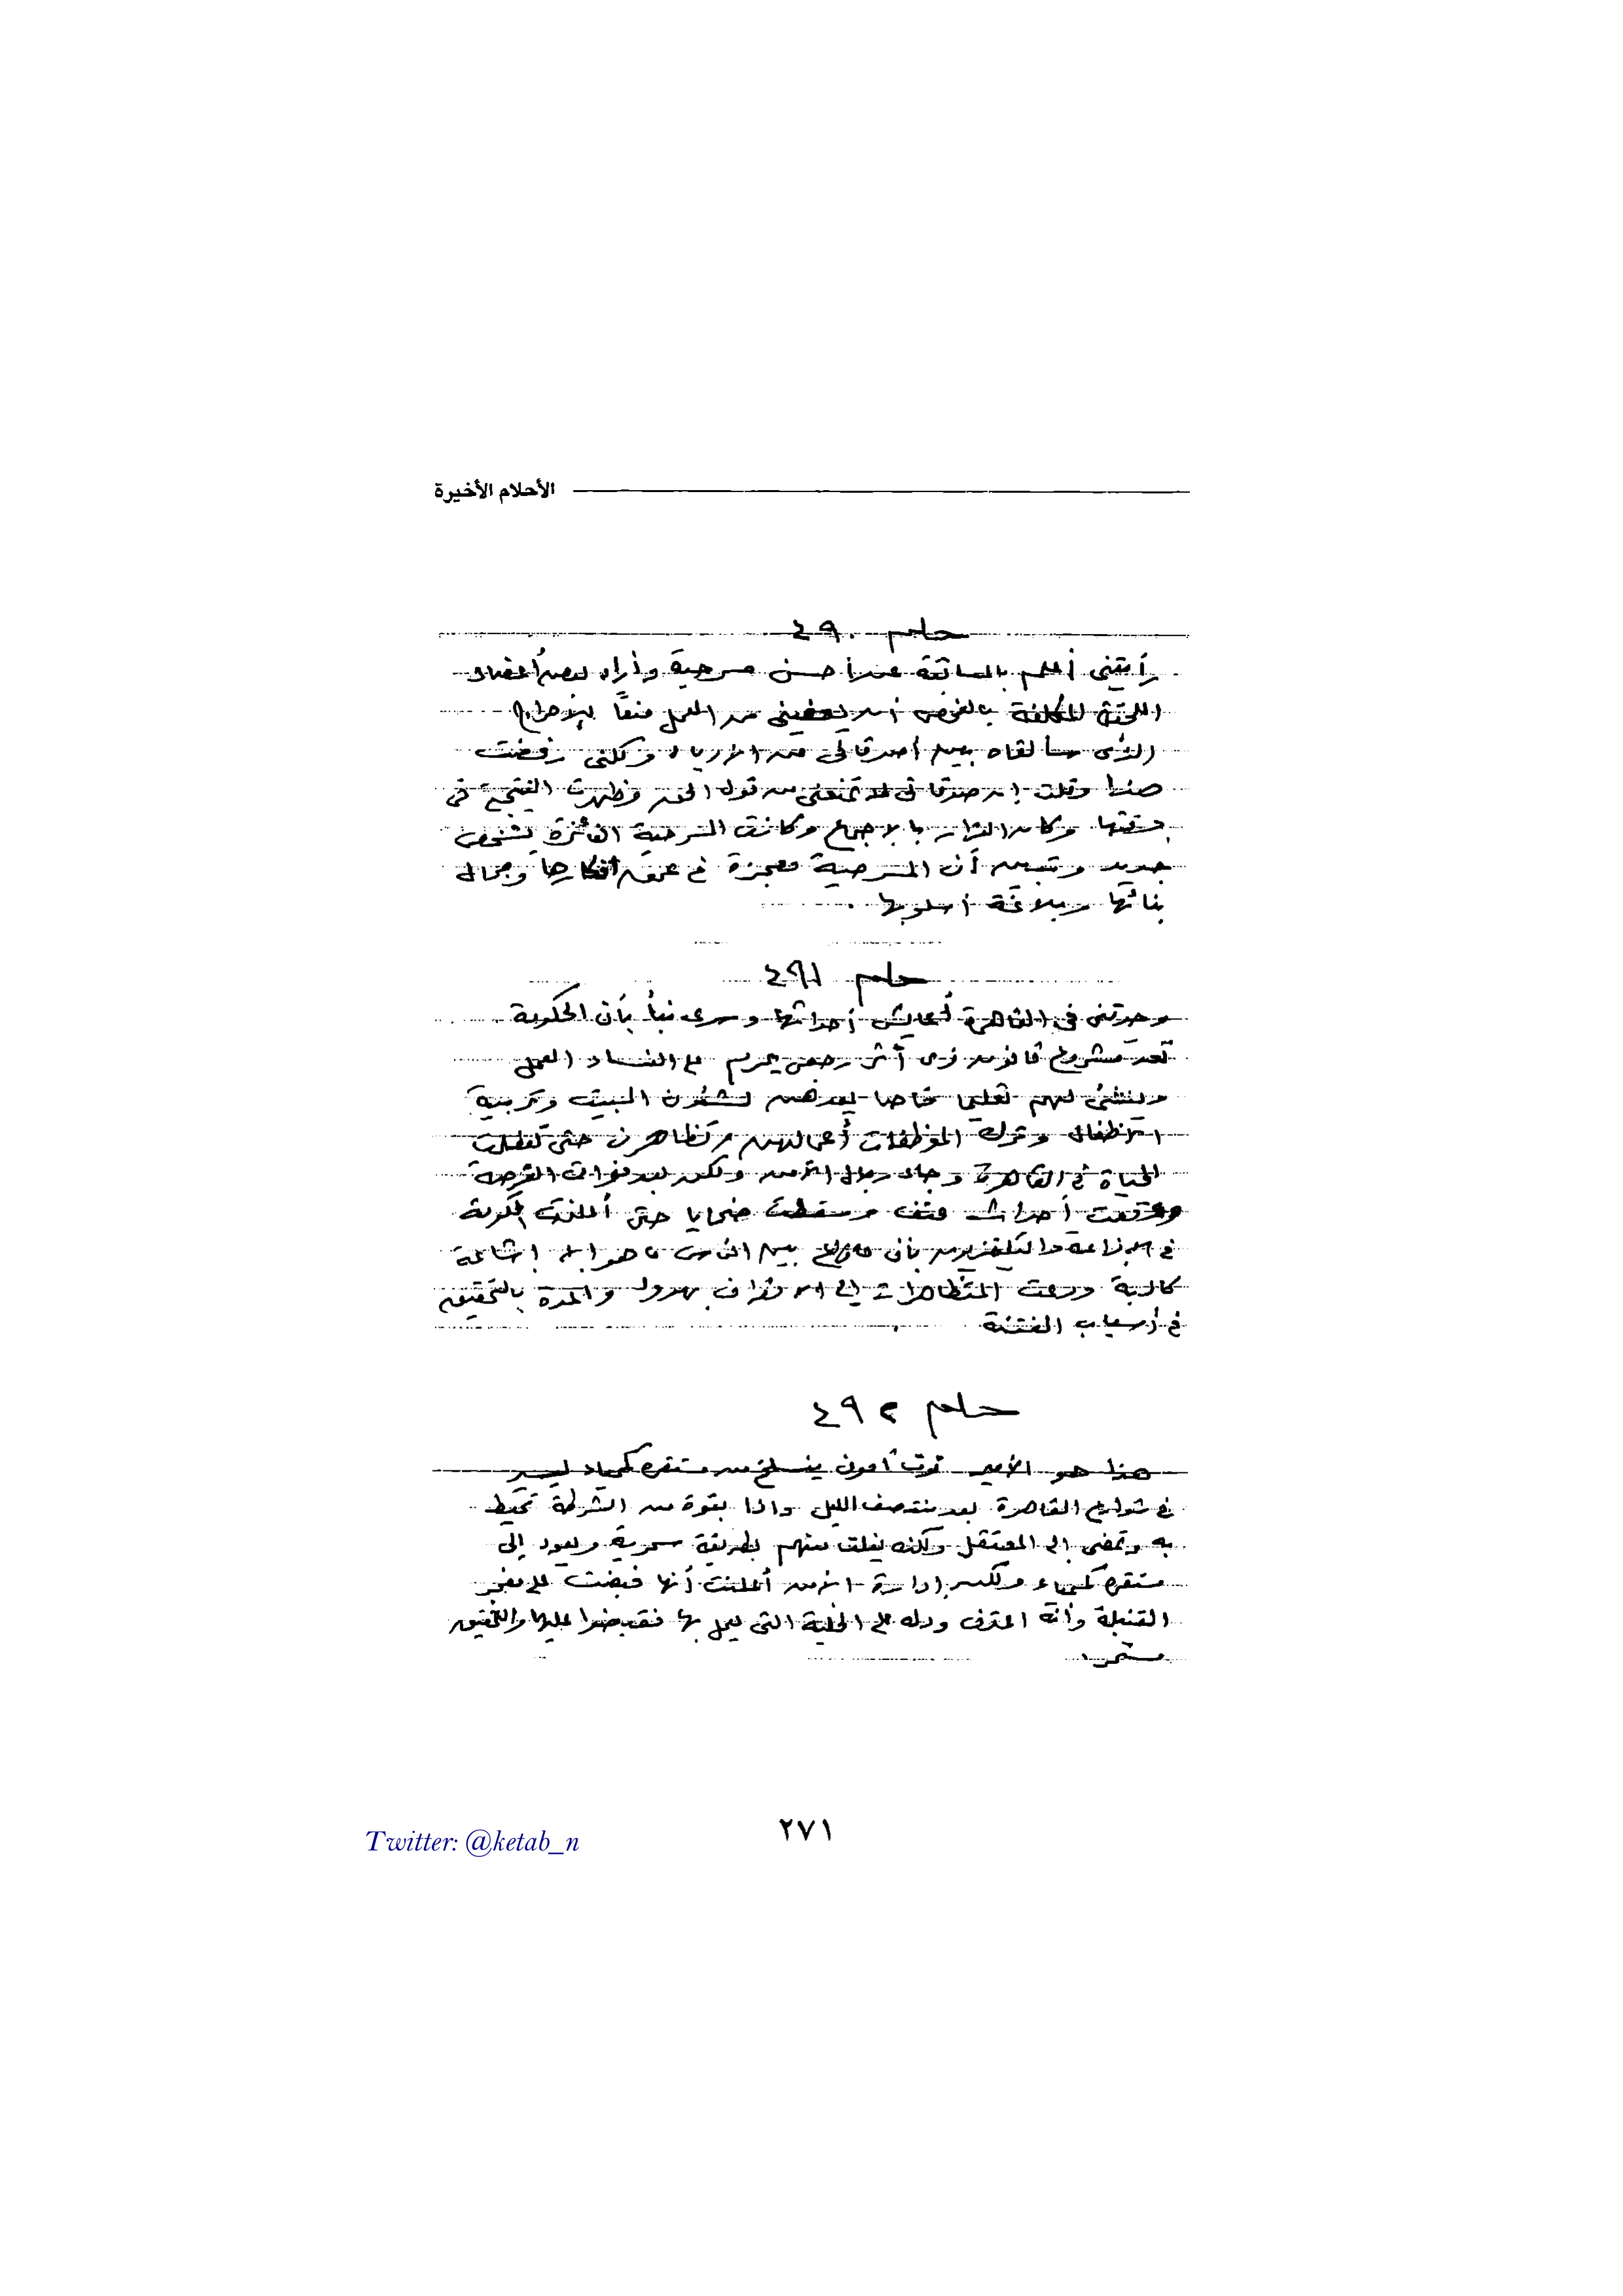 الأحلام الأخيرة
حلم ٤٩٠
رأيتني أحلم بالمسابقة عن أحسن مسرحية وأراد بعض أعضاء
اللجنة المكلفة بالفحص أن يعفيني من العمل منعًا للإحراج
الذى سألقاه بين أصدقائى من الأدباء ولكنى رفضت
هذا وقلت إن صداقاتى لا تمنعنى من قول الحق وظهرت النتيجة فى
وكان القرار بالاجماع وكانت المسرحية الفائزة لشخص
جديد وتبين أن المسرحية معجزة فى عمق أفكارها وجمال
بنائها وبلاغة أسلوبها
حلم ٤٩١
وجدتنى فى القاهرة أعايش أحداثها وسرى نبأ بأن الحكومة
تعد مشروع قانون ذى أثر رجعى يحرم على النساء العمل
وينشئ لهم تعليما خاصا يعدهن لشئون البيت وتربية
الأطفال وترك الموظفات أعمالهن وتظاهرن حتى تعطلت
الحياة فى القاهرة وجاء رجال الأمن ولكن بعد فوات الفرصة
ووقعت أحداث عنف وسقطت ضحايا حتى أعلنت الحكومة
فى الإذاعة والتليفزيون بأن ما بين الناس ما هو إلا إشاعة
كاذبة ودعت المتظاهرات إلى الانصراف بهدوء بالتحقيق
فى أسباب الفتنة
حلم ٤٩٢
هذا هو الأمير توت أمون ينسلخ من مستقره كمومياء ليسير
فى شوارع القاهرة بعد منتصف الليل واذا بقوة من الشرطة تحيط
به وتمضى إلى المعتقل ولكنه يفلت منهم بطريقة سحرية ويعود إلى
مستقره كمومياء ولكن إدارة الأمن أعلنت أنها قبضت على مفجر
القنبلة وأنه اعترف ودله على الخلية التى يعمل بها فقبضوا عليها والتحقيق
مستمر
٢٧١
Twitter: @ketab_n